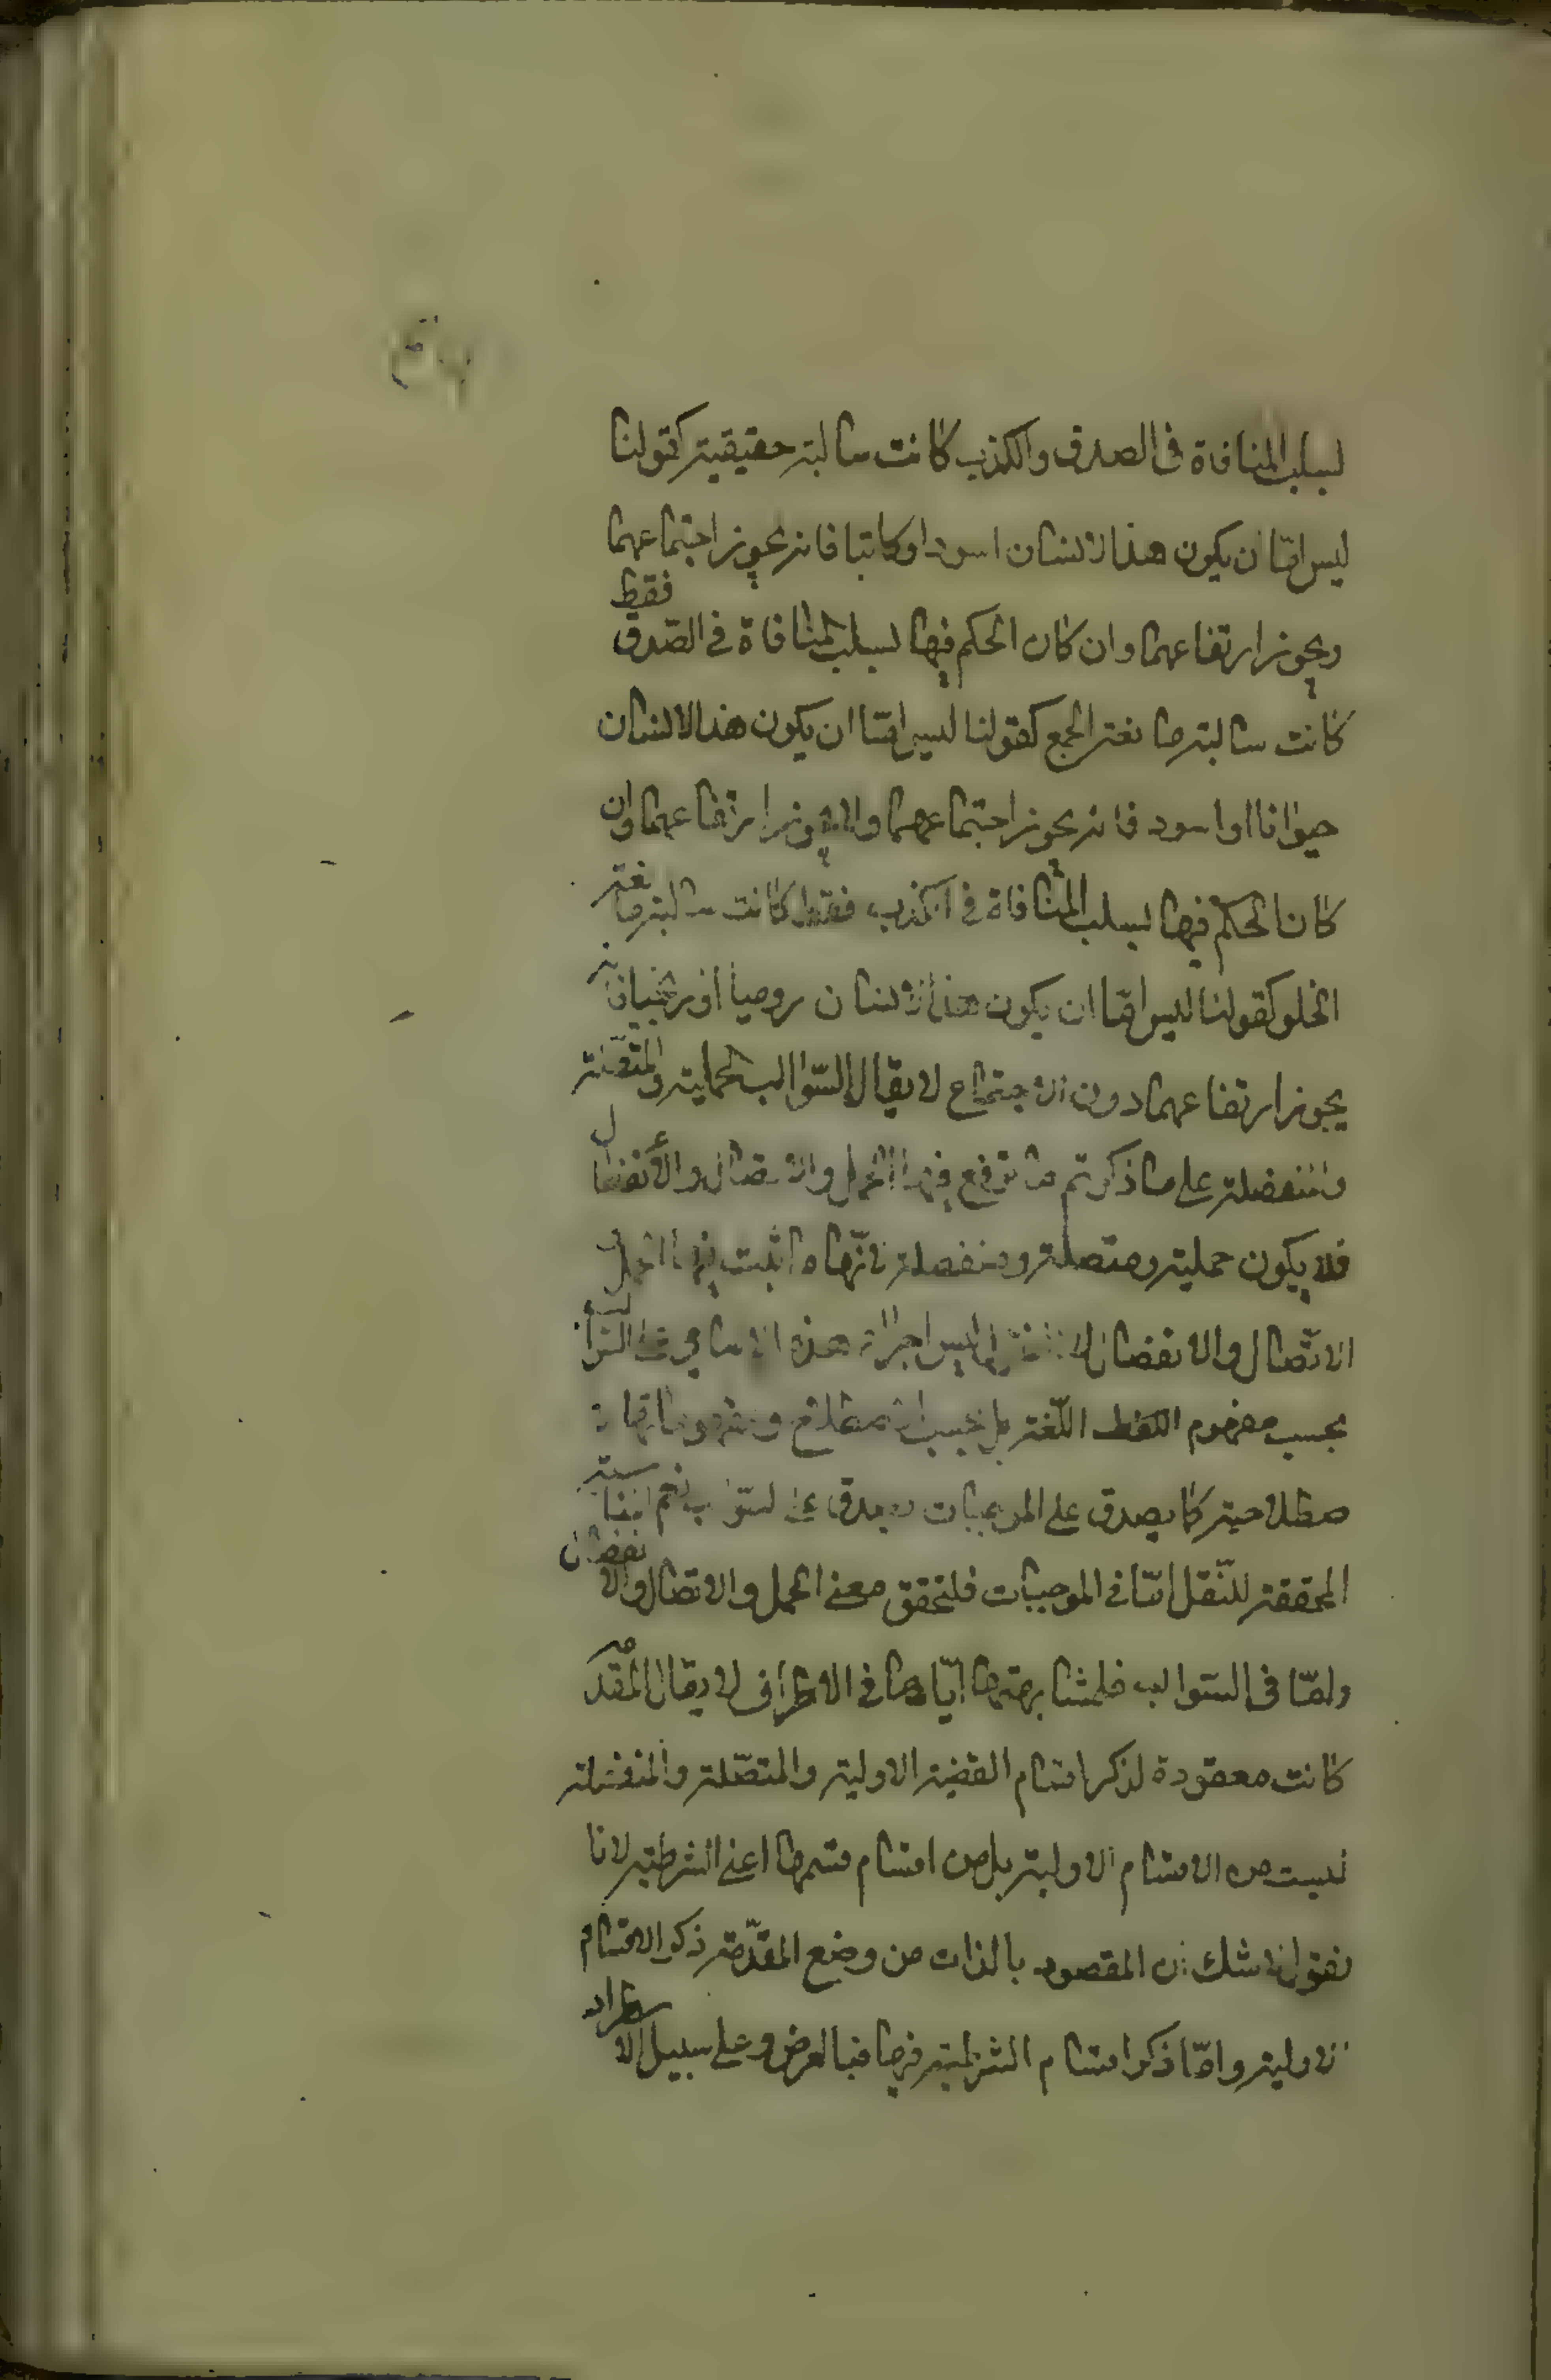 لسلب المنافاة فى الصدق والكذب كانت سالبة حقيقية كقولنا
ليس امّا ان يكون هذا الانسان اسود او كاتبا فانه يجوز اجتماعهما
ويجوز ارتفاعهما وان كان الحكم فيها لسلب المنافاة فى الصّدق فقط
كانت سالبة مانعة الجمع كقولنا ليس امّا ان يكون هذا الانسان
حيوانا او اسود فانه يجوز اجتماعهما ولا يجوز ارتفاعهما وان
كان الحكم فيها لسلب المنافاة فى الكذب فقط كانت سالبة مانعة
الخلو كقولنا ليس امّا ان يكون هذا الانسان روميا او زنجيا فانه
يجوز ارتفاعهما دون الاجتماع لا يقال السّوالب الحملية والمتّصلة
والمنفصلة على ما ذكرتم ما ترفع فيها الحمل والاتصال والأنفصال
فلا يكون حملية ومتصلة ومنفصلة لانّها ما اثبت فيها الحمل
الاتّصال والانفصال لانا نقول ليس اجراء هذه الاسامى على السّوالب
بحسب مفهوم اللفظ اللّغة بل بحسب الاصطلاح ومفهوماتها
صطلاحية كما يصدق على الموجبات يصدق على السّوالب نعم المناسبة
المحققة للنّقل امّا فى الموجبات فلتحقق معنى الحمل والاتصال والانفصال
وامّا فى السّوالب فلمشابهتها ايّاها فى الاطراف لا يقال المقدّمة
كانت معقودة لذكر اقسام القضية الاولية والمتّصلة والمنفصلة
ليست من الاقسام الاولية بل من اقسام قسمها اعنى الشرطية لانا
نقول لا شك ان المقصود بالذات من وضع المقدّمة ذكر الاقسام
الاولية وامّا ذكر اقسام الشرطية فيها فبالعرض وعلى سبيل الاستطراد